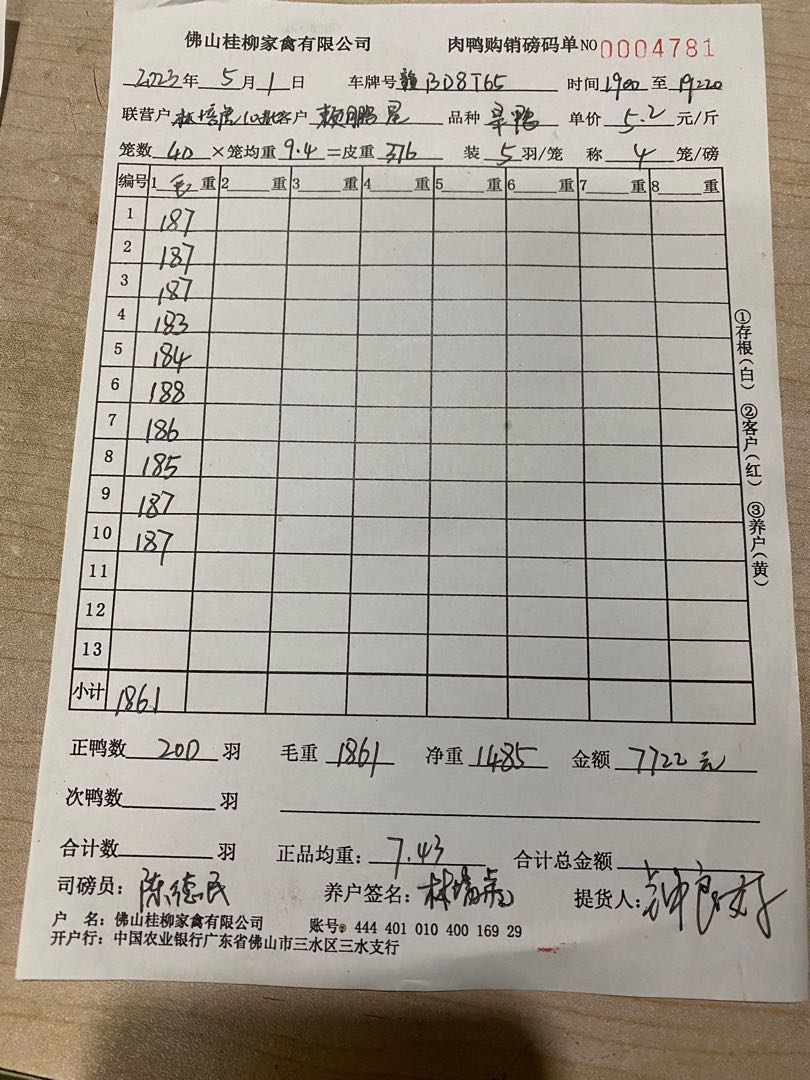 佛山桂柳家禽有限公司 肉鸭购销磅码单NO 0004781
2023年 5月 1日 车牌号 赣BD8T65 时间 1900 至 19:20
联营户 林培 客户 鹏星 品种 旱鸭 单价 5.2 元/斤
笼数 40 ×笼均重 9.4 =皮重 376 装 5 羽/笼 称 4 笼/磅
编号 1 毛 重 2 重 3 重 4 重 5 重 6 重 7 重 8 重
1 187
2 187
3 187
4 183
5 184
6 188
7 186
8 185
9 187
10 187
11
12
13
小计 1861
正鸭数 200 羽 毛重 1861 净重 1485 金额 7722元
次鸭数 羽
合计数 羽 正品均重: 7.43 合计总金额
司磅员: 陈德民 养户签名: 林培 提货人:
户 名: 佛山桂柳家禽有限公司 账号: 444 401 010 400 169 29
开户行: 中国农业银行广东省佛山市三水区三水支行
①存根(白) ②客户(红) ③养户(黄)